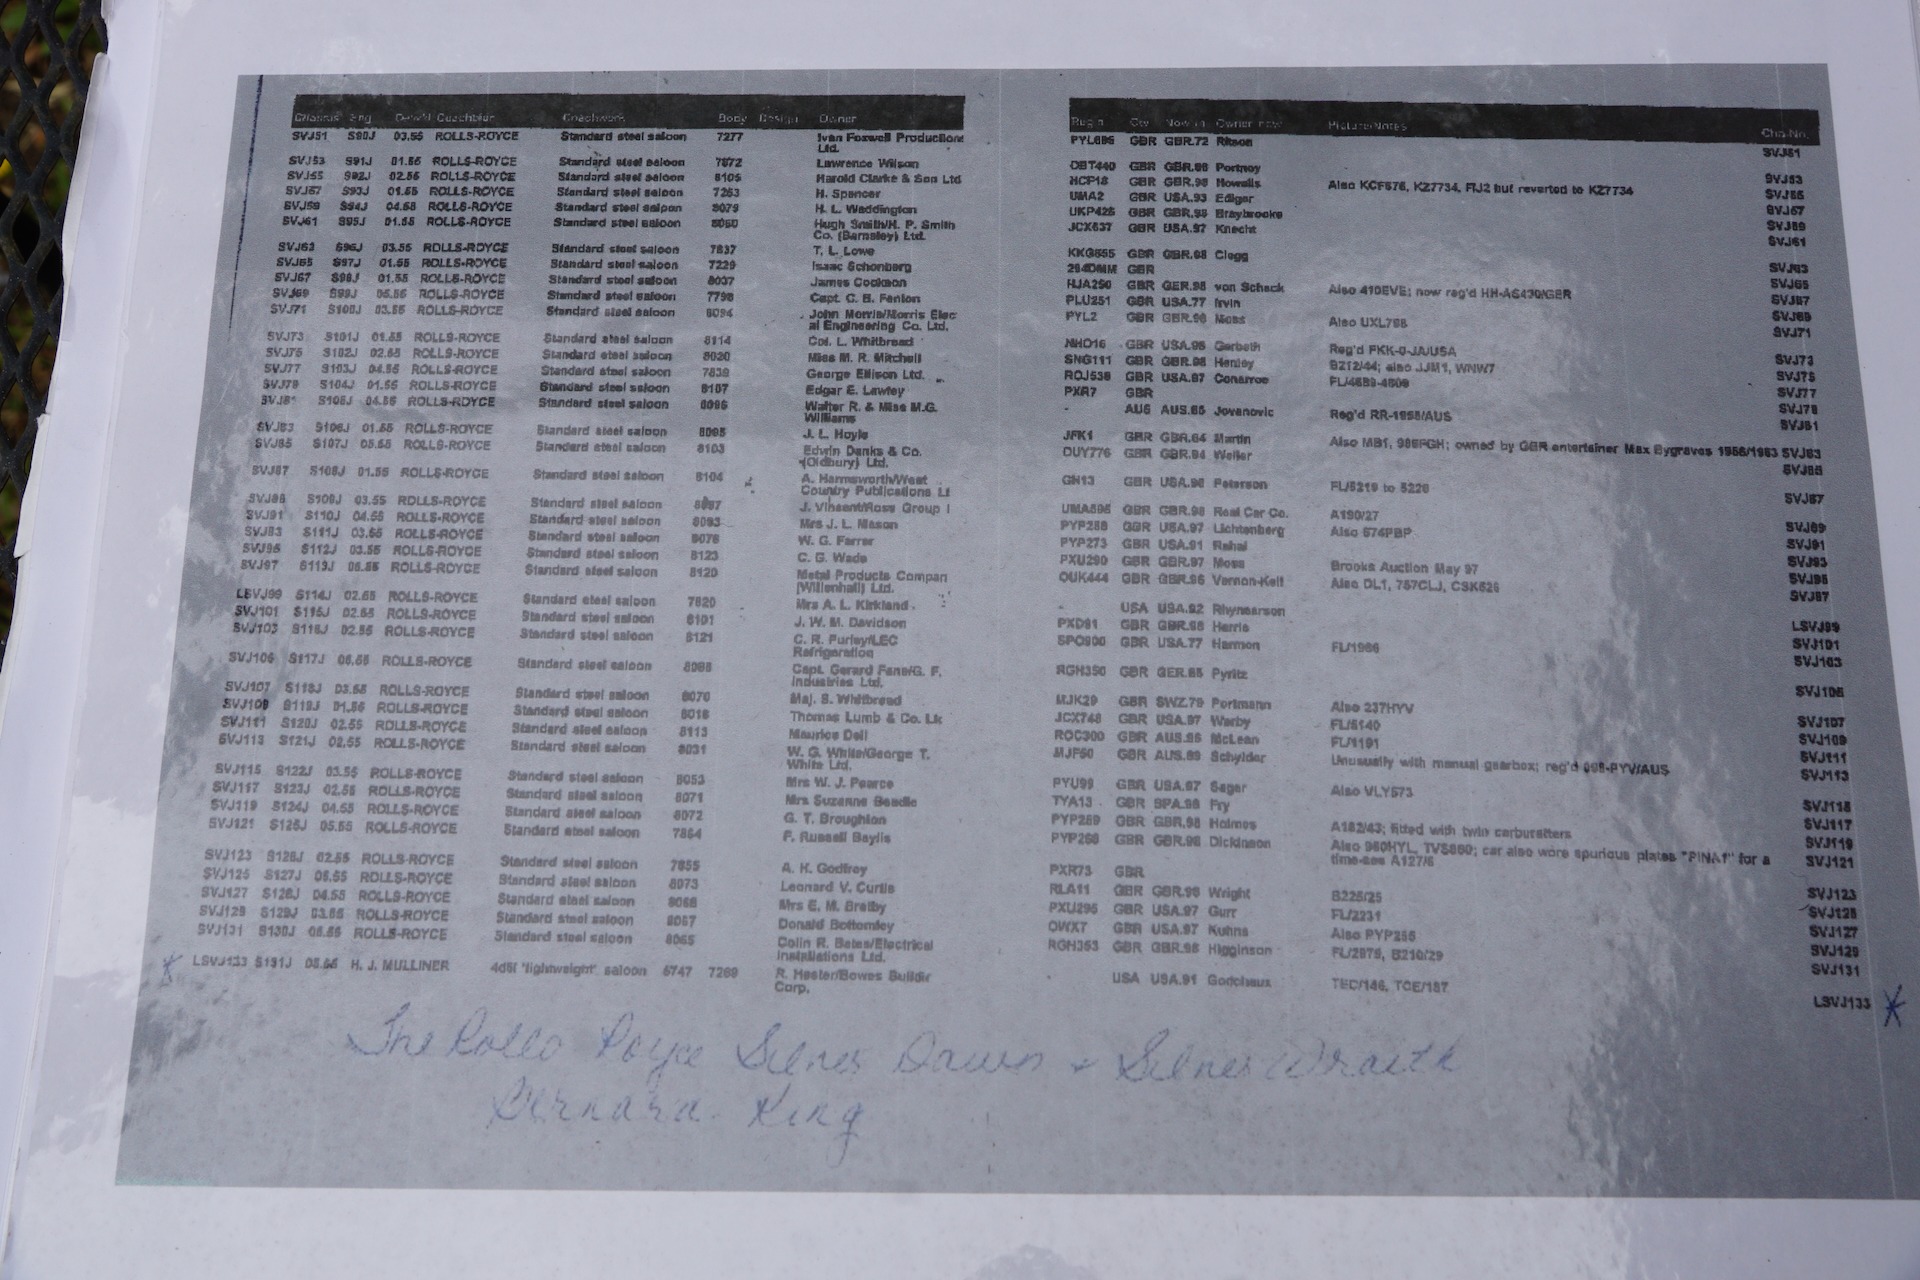 Chassis Eng Coachbldr Coachwork Body Design Owner Reg'n Cty Now in Owner now Picture/Notes Cha-No.
SVJ51 S90J 03.55 ROLLS-ROYCE Standard steel saloon 7277 Ivan Foxwell Productions Ltd. PYL686 GBR GBR.72 Ritson SVJ51
SVJ53 S91J 01.55 ROLLS-ROYCE Standard steel saloon 7872 Lawrence Wilson GBR GBR.98 Portnoy SVJ53
SVJ55 S92J 02.55 ROLLS-ROYCE Standard steel saloon 8105 Harold Clarke & Son Ltd HCF18 GBR GBR.98 Howells Also KCF576, KZ7734, FIJ2 but reverted to KZ7734 SVJ55
SVJ57 S93J 01.55 ROLLS-ROYCE Standard steel saloon 7263 H. Spencer UMA2 GBR USA.93 Edigar SVJ57
SVJ59 S94J 04.55 ROLLS-ROYCE Standard steel saloon 8079 H. L. Waddington UKP425 GBR GBR.98 Braybrooke SVJ59
SVJ61 S95J 01.55 ROLLS-ROYCE Standard steel saloon Hugh Smith/H. P. Smith Co. (Barnsley) Ltd. JCX637 GBR USA.97 Knecht SVJ61
SVJ63 S96J 03.55 ROLLS-ROYCE Standard steel saloon 7837 T. L. Lowe KKG555 GBR GBR.98 Clegg SVJ63
SVJ65 S97J 01.55 ROLLS-ROYCE Standard steel saloon 7229 Isaac Schonberg 294DMM GBR SVJ65
SVJ67 S98J 01.55 ROLLS-ROYCE Standard steel saloon 8037 James Cookson HJA250 GBR GER.98 von Schack Also 410EVE; now reg'd HH-AS430/GER SVJ67
SVJ69 S99J 05.55 ROLLS-ROYCE Standard steel saloon 7798 Capt. C. B. Fenton PLU251 GBR USA.77 Irvin SVJ69
SVJ71 S100J 03.55 ROLLS-ROYCE Standard steel saloon 8094 John Morris/Morris Elec al Engineering Co. Ltd. PYL2 GBR GBR.96 Moss Also UXL788 SVJ71
SVJ73 S101J 01.55 ROLLS-ROYCE Standard steel saloon 8114 Col. L. Whitbread NHO16 GBR USA.95 Gerbeth Reg'd FKK-0-JA/USA SVJ73
SVJ75 S102J 02.55 ROLLS-ROYCE Standard steel saloon 8020 Miss M. R. Mitchell SNG111 GBR GBR.98 Henley B212/44; also JJM1, WNW7 SVJ75
SVJ77 S103J 04.55 ROLLS-ROYCE Standard steel saloon 7839 George Ellison Ltd. ROJ539 GBR USA.97 Conarroe SVJ77
SVJ79 S104J 01.55 ROLLS-ROYCE Standard steel saloon 8107 Edgar E. Lawley PXR7 GBR SVJ79
SVJ81 S105J 04.55 ROLLS-ROYCE Standard steel saloon 8096 Walter R. & Miss M.G. Williams - AUS AUS.65 Jovanovic Reg'd RR-1955/AUS SVJ81
SVJ83 S106J 01.55 ROLLS-ROYCE Standard steel saloon 8095 J. L. Hoyle JFK1 GBR GBR.64 Martin Also MB1, 986FGH; owned by GBR entertainer Max Bygraves 1958/1963 SVJ83
SVJ85 S107J 05.55 ROLLS-ROYCE Standard steel saloon 8103 Edwin Danks & Co. (Oldbury) Ltd. OUY776 GBR GBR.94 Weller SVJ85
SVJ87 S108J 01.55 ROLLS-ROYCE Standard steel saloon 8104 A. Harmsworth/West Country Publications Lt GH13 GBR USA.96 Peterson FL/5219 to 5220 SVJ87
SVJ89 S109J 03.55 ROLLS-ROYCE Standard steel saloon J. Vincent/Ross Group l UMA595 GBR GBR.98 Real Car Co. A190/27 SVJ89
SVJ91 S110J 04.55 ROLLS-ROYCE Standard steel saloon 8093 Mrs J. L. Mason PYP288 GBR USA.97 Lichtenberg Also 574PBP SVJ91
SVJ93 S111J 03.55 ROLLS-ROYCE Standard steel saloon 8078 W. G. Farrer PYP273 GBR USA.91 Rahal SVJ93
SVJ95 S112J 03.55 ROLLS-ROYCE Standard steel saloon 8123 C. G. Wade PXU290 GBR GBR.97 Moss Brooks Auction May 97 SVJ95
SVJ97 S113J 05.55 ROLLS-ROYCE Standard steel saloon 8120 Metal Products Compan (Willenhall) Ltd. OUK444 GBR GBR.96 Vernon-Kell Also DL1, 757CLJ, CSK526 SVJ97
LSVJ99 S114J 02.55 ROLLS-ROYCE Standard steel saloon 7820 Mrs A. L. Kirkland USA USA.92 Rhynearson LSVJ99
SVJ101 S115J 02.55 ROLLS-ROYCE Standard steel saloon 8101 J. W. M. Davidson PXD91 GBR GBR.98 Harris SVJ101
SVJ103 S116J 02.55 ROLLS-ROYCE Standard steel saloon 8121 C. R. Purley/LEC Refrigeration SPO900 GBR USA.77 Harmon FL/1966 SVJ103
SVJ105 S117J 05.55 ROLLS-ROYCE Standard steel saloon 8098 Capt. Gerard Fane/G. F. Industries Ltd. RGH350 GBR GER.65 Pyritz SVJ105
SVJ107 S118J 03.55 ROLLS-ROYCE Standard steel saloon 8070 Maj. S. Whitbread MJK29 GBR SWZ.79 Portmann Also 237HYV SVJ107
SVJ109 S119J 01.55 ROLLS-ROYCE Standard steel saloon 8018 Thomas Lumb & Co. Lt JCX748 GBR USA.97 Warby FL/5140 SVJ109
SVJ111 S120J 02.55 ROLLS-ROYCE Standard steel saloon 8113 Maurice Dell ROC300 GBR AUS.95 McLean FL/1191 SVJ111
SVJ113 S121J 02.55 ROLLS-ROYCE Standard steel saloon 8031 W. G. White/George T. White Ltd. MJF50 GBR AUS.89 Schylder Unusually with manual gearbox; reg'd 098-PYV/AUS SVJ113
SVJ115 S122J 03.55 ROLLS-ROYCE Standard steel saloon 8053 Mrs W. J. Pearce PYU99 GBR USA.67 Sagar Also VLY573 SVJ115
SVJ117 S123J 02.55 ROLLS-ROYCE Standard steel saloon 8071 Mrs Suzanne Beadle TYA13 GBR SPA.98 Fry SVJ117
SVJ119 S124J 04.55 ROLLS-ROYCE Standard steel saloon 8072 G. T. Broughton PYP259 GBR GBR.98 Holmes A182/43; fitted with twin carburetters SVJ119
SVJ121 S125J 05.55 ROLLS-ROYCE Standard steel saloon 7864 F. Russell Baylis PYP268 GBR GBR.98 Dickinson Also 960HYL, TVS860; car also wore spurious plates "PINA1" for a time-see A127/6 SVJ121
SVJ123 S126J 02.55 ROLLS-ROYCE Standard steel saloon 7855 A. H. Godfrey PXR73 GBR SVJ123
SVJ125 S127J 05.55 ROLLS-ROYCE Standard steel saloon 8073 Leonard V. Curtis RLA11 GBR GBR.98 Wright B225/25 SVJ125
SVJ127 S128J 04.55 ROLLS-ROYCE Standard steel saloon 8068 Mrs E. M. Bratby PXU295 GBR USA.97 Gurr FL/2231 SVJ127
SVJ129 S129J 03.55 ROLLS-ROYCE Standard steel saloon 8067 Donald Bottomley OWX7 GBR USA.97 Kuhns Also PYP255 SVJ129
SVJ131 S130J 05.55 ROLLS-ROYCE Standard steel saloon 8065 Colin R. Bates/Electrical Installations Ltd. RGH353 GBR GBR.98 Higginson FL/2979, B210/29 SVJ131
* LSVJ133 S131J 05.55 H. J. MULLINER 4d5l 'lightweight' saloon 5747 7269 R. Hester/Bowes Buildir Corp. USA USA.91 Godchaux TEC/146, TCE/187 LSVJ133 *
The Rolls Royce Silver Dawn + Silver Wraith
Bernard King